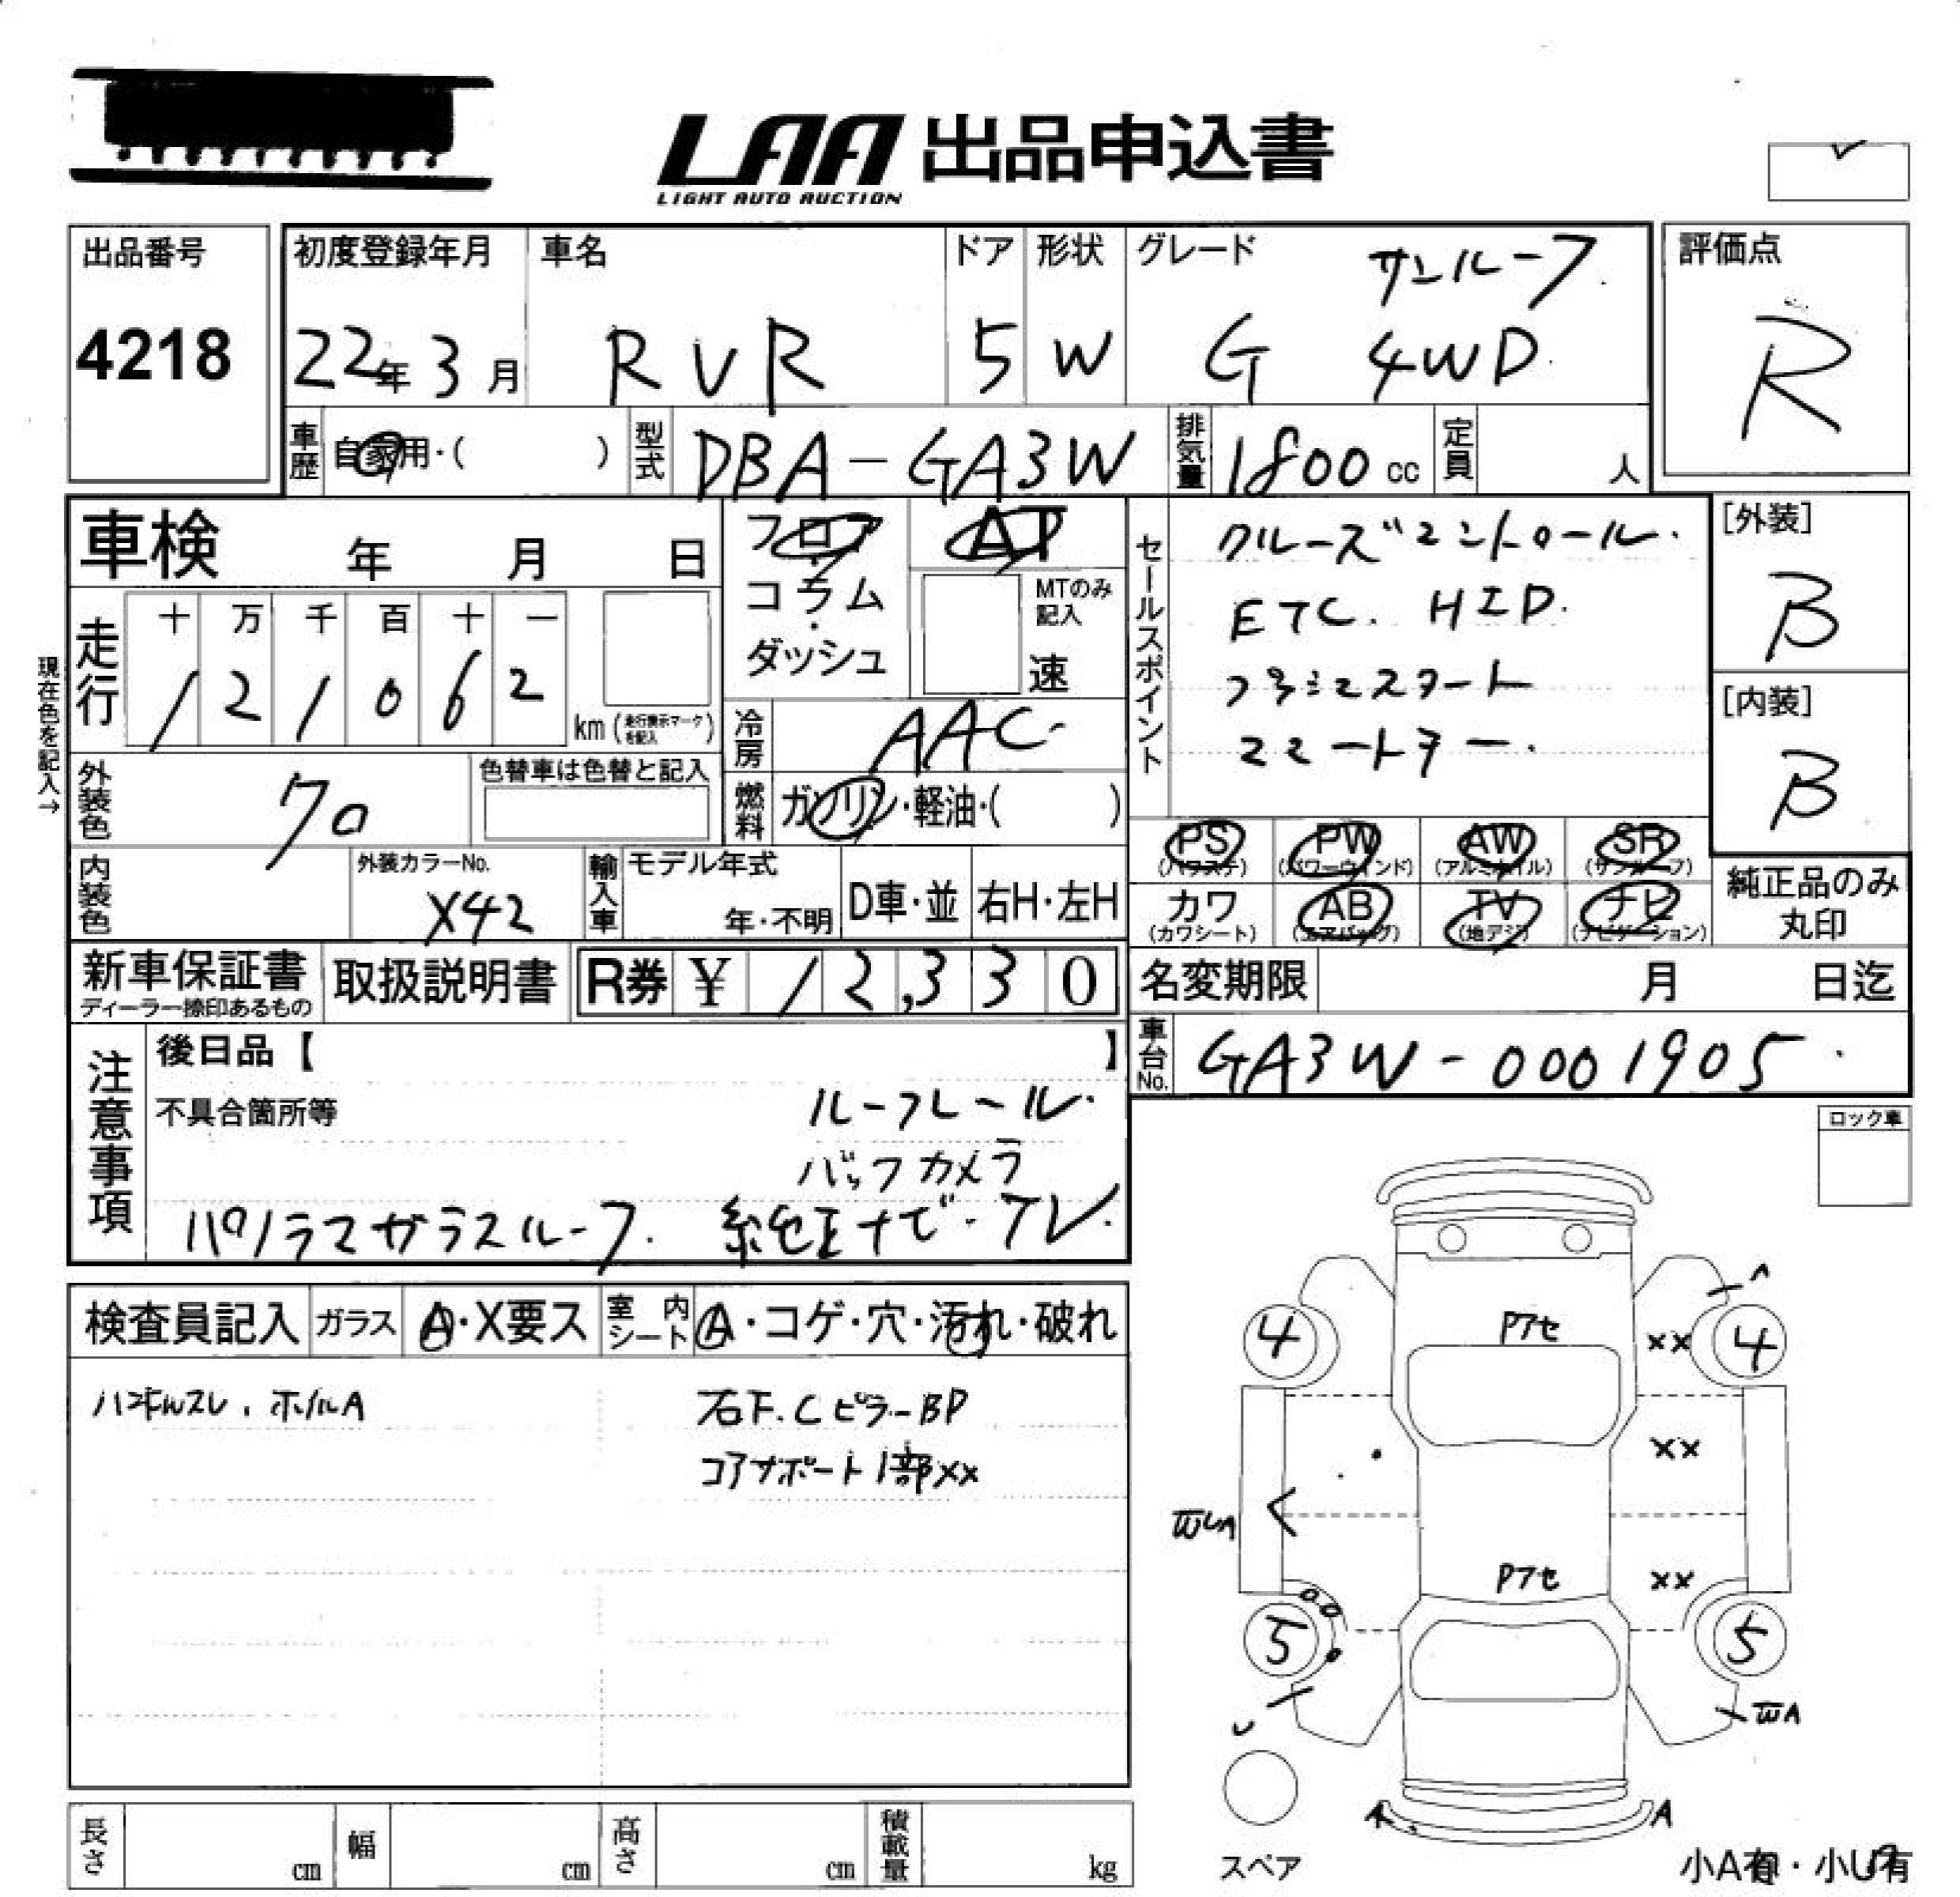 LAA 出品申込書
LIGHT AUTO AUCTION
出品番号
4218
初度登録年月
22年3月
車名
RVR
ドア
5
形状
W
グレード
サンルーフ
G 4WD
評価点
R
車歴
自家用・( )
型式
DBA-GA3W
排気量
1800cc
定員
人
車検 年 月 日
フロア
コラム
ダッシュ
AT
MTのみ
記入
速
セールスポイント
クルーズコントロール.
ETC. HID.
プッシュスタート
スマートキー.
[外装]
B
[内装]
B
現在色を記入→
走行
十 万 千 百 十 一
1 2 1 0 6 2
km (走行表示マークを記入)
冷房
AAC
燃料
ガソリン・軽油・( )
外装色
クロ
色替車は色替と記入
内装色
外装カラーNo.
X42
輸入車
モデル年式
年・不明
D車・並
右H・左H
PS
(パワステ)
PW
(パワーウィンド)
AW
(アルミホイル)
SR
(サンルーフ)
カワ
(カワシート)
AB
(エアバッグ)
TV
(地デジ)
ナビ
(ナビゲーション)
純正品のみ
丸印
新車保証書
ディーラー捺印あるもの
取扱説明書
R券 ¥ 12,330
名変期限 月 日迄
車台No.
GA3W-0001905
注意事項
後日品【 】
不具合箇所等
ルーフレール.
バックカメラ
パノラマガラスルーフ. 純正ナビ・TV.
ロック車
検査員記入
ガラス
A・X要ス
室内シート
A・コゲ・穴・汚れ・破れ
ハンドルスレ、ホイルA
右下.CピラーBP
コアサポート1部XX
Pアセ
4
4
XX
XX
Pアセ
XX
5
5
A
A
スペア
小A有・小U有
長さ cm
幅 cm
高さ cm
積載量 kg